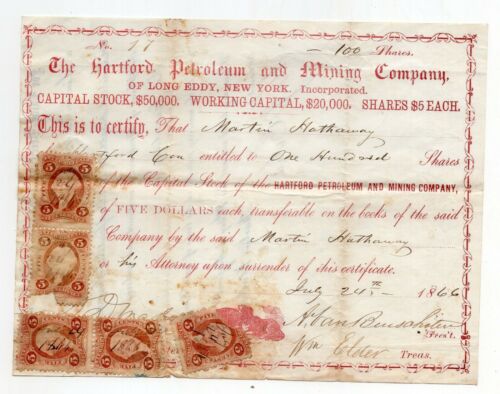 No. 11 100 Shares.
The Hartford Petroleum and Mining Company,
OF LONG EDDY, NEW YORK. Incorporated.
CAPITAL STOCK, $50,000. WORKING CAPITAL, $20,000. SHARES $5 EACH.
This is to certify, That Martin Hathaway
Hartford Con entitled to One Hundred Shares
of the Capital Stock of the HARTFORD PETROLEUM AND MINING COMPANY,
of FIVE DOLLARS each, transferable on the books of the said
Company by the said Martin Hathaway
or his Attorney upon surrender of this certificate.
July 24th 1866
Pres't.
Wm Elder Treas.
5 5
5 5
5 5
5 5
5 5